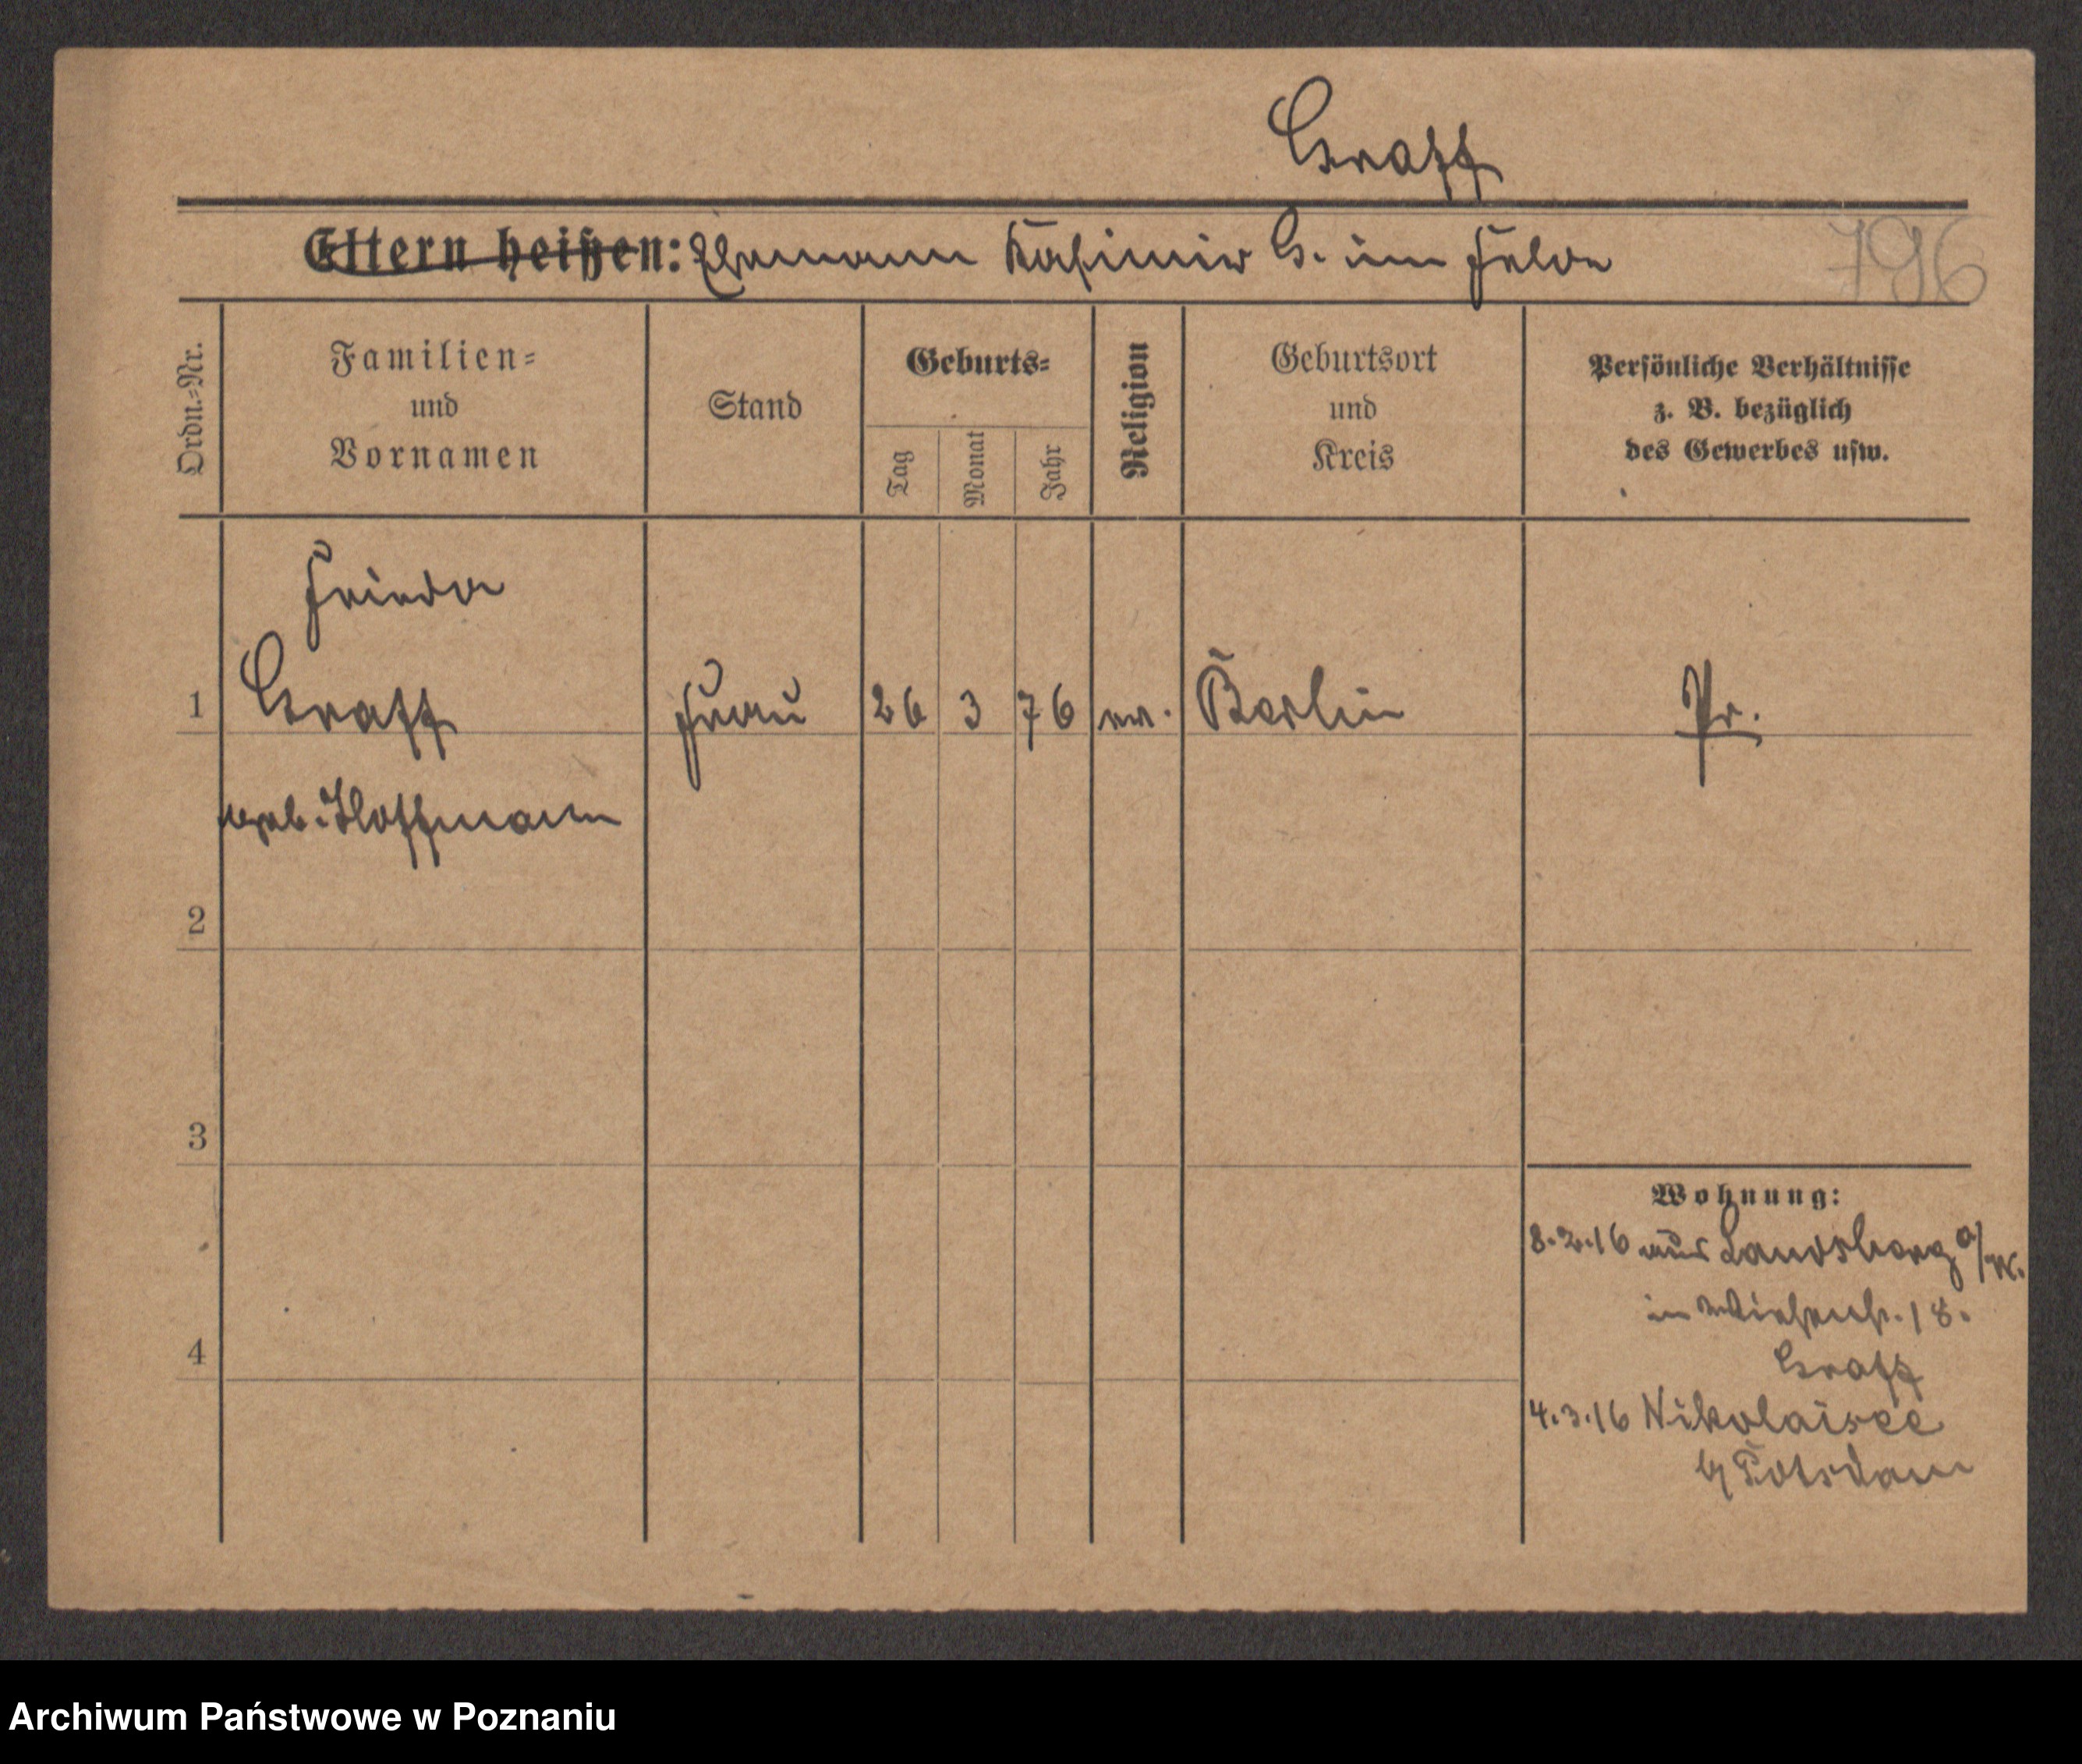 Graff
Eltern heißen: Ehemann Kasimir G. im Felde
796
Ordn.-Nr.
Familien-
und
Vornamen
Stand
Geburts-
Tag
Monat
Jahr
Religion
Geburtsort
und
Kreis
Persönliche Verhältnisse
z. B. bezüglich
des Gewerbes usw.
Frieda
1 Graff Frau 26 3 76 ev. Berlin Pr.
geb. Hoffmann
2
3
Wohnung:
8.2.16 aus Landsberg a/W.
in Wiesenstr. 18.
4
Graff
4.3.16 Nikolaisee
b/ Potsdam
Archiwum Państwowe w Poznaniu